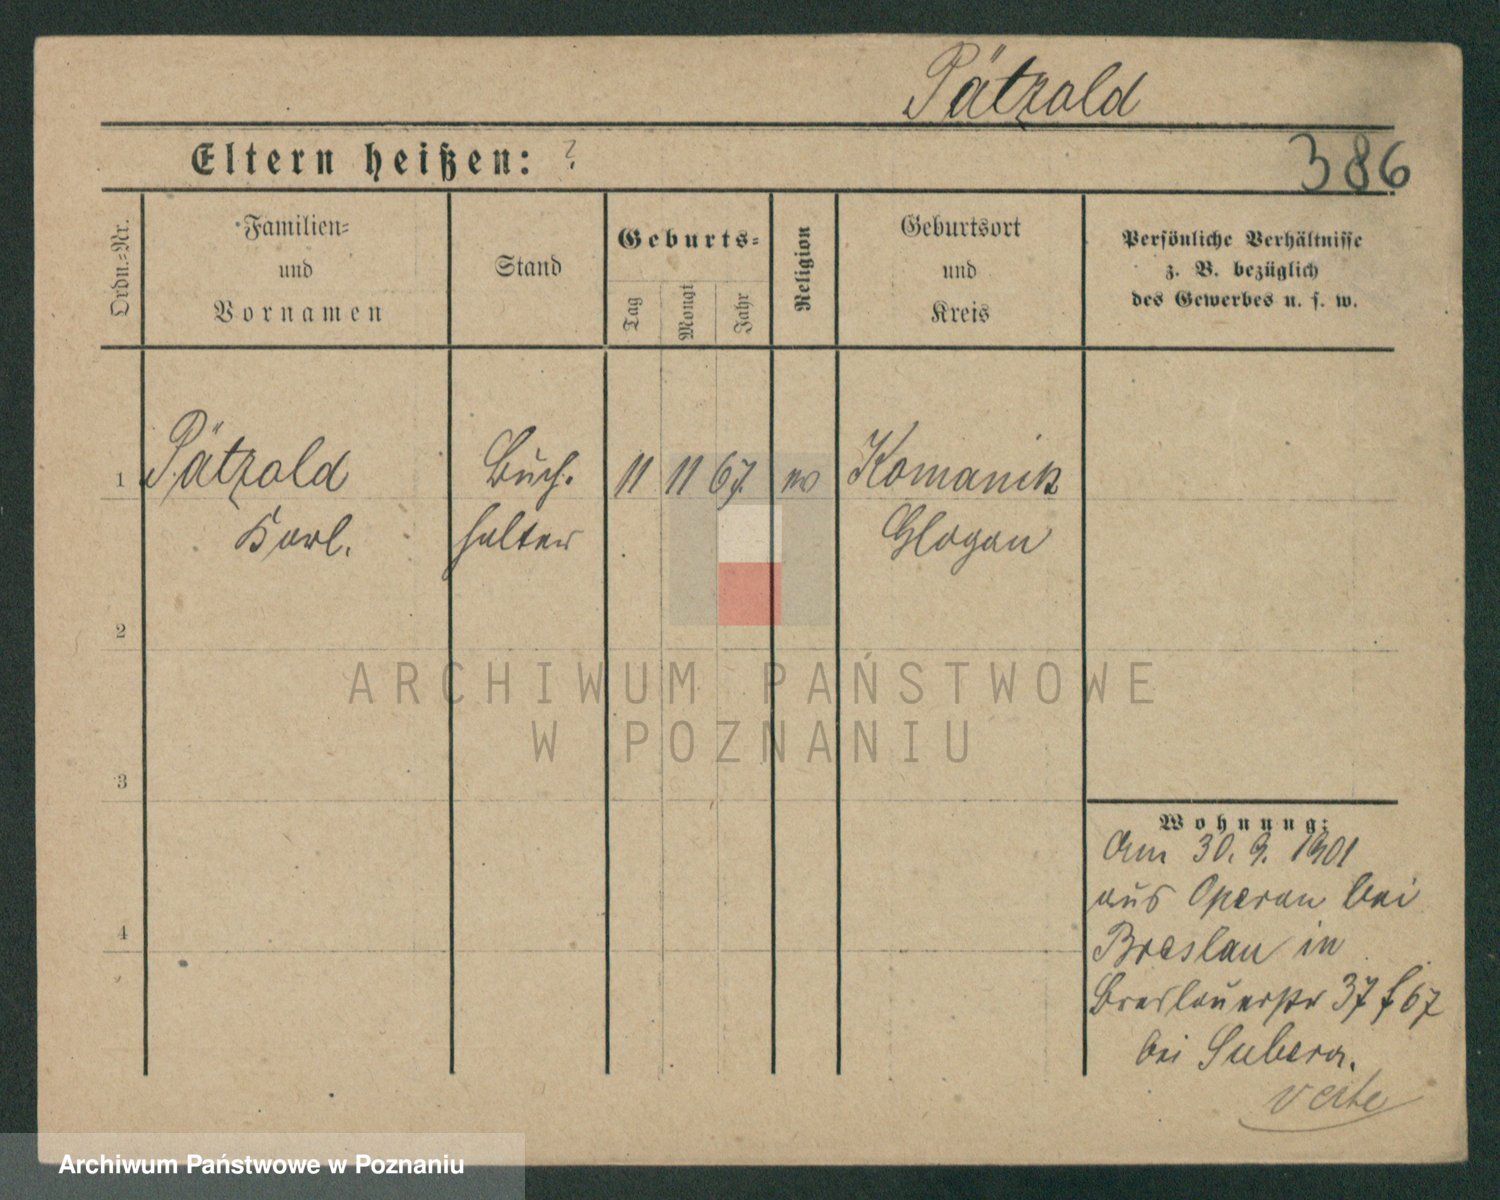 Pätzold
Eltern heißen: ?
386
Ordn.-Nr.
Familien-
und
Vornamen
Stand
Geburts-
Tag
Monat
Jahr
Religion
Geburtsort
und
Kreis
Persönliche Verhältnisse
z. B. bezüglich
des Gewerbes u. s. w.
1 Pätzold Buch- 11 11 67. ev Komanik
Karl. halter Glogau
2
ARCHIWUM PAŃSTWOWE
W POZNANIU
3
Wohnung:
Am 30. 9. 1901
aus Operau bei
4
Breslau in
Breslauerstr 37 f 67
bei Subera.
verte
Archiwum Państwowe w Poznaniu